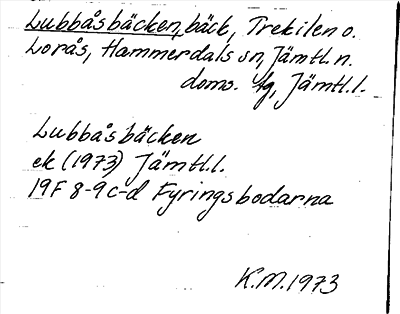 Lubbåsbäcken, bäck, Trekilen o.
Lorås, Hammerdals sn, Jämtl. n.
doms. fg, Jämtl. l.
Lubbåsbäcken
ek (1973) Jämtl. l.
19F 8-9 c-d Fyringsbodarna
K.M. 1973